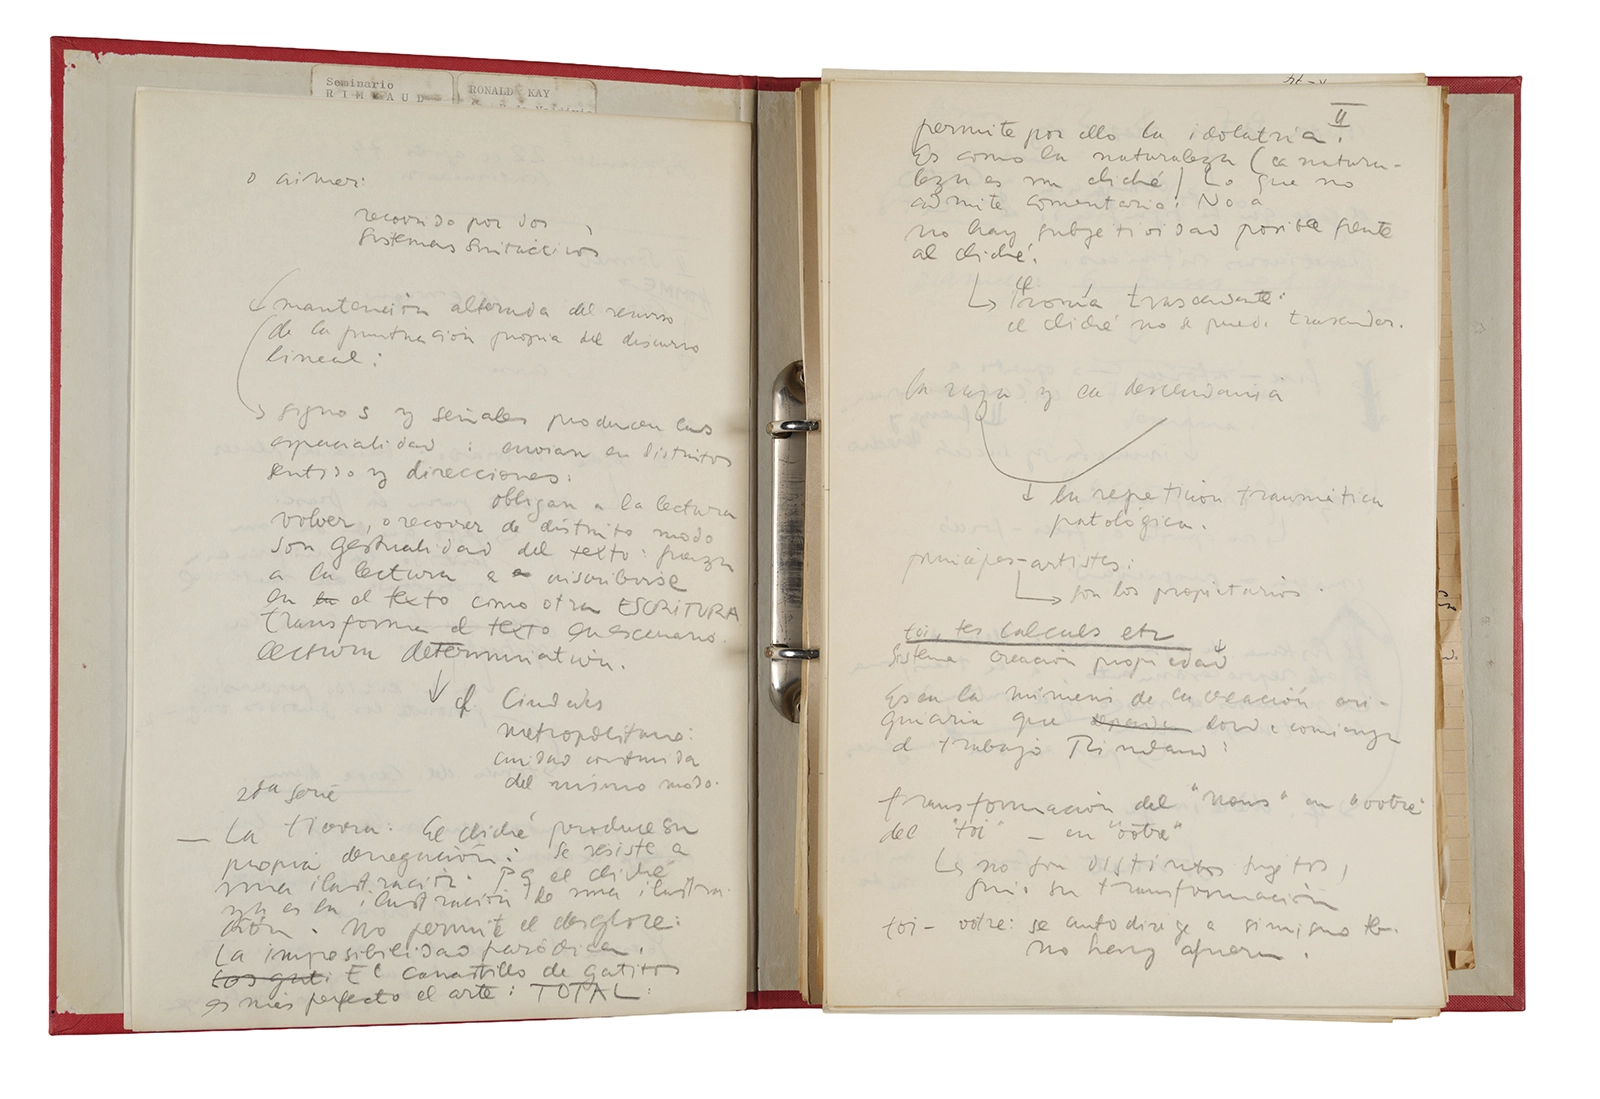 Seminario
RIMBAUD
RONALD KAY
o aimer:
recorrido por dos
sistemas sintácticos
mantención alternada del recurso
de la puntuación propia del discurso
lineal:
signos y señales producen la
espacialidad: envian en distintos
sentido y direcciones:
obligan a la lectura
volver, o recorrer de distinto modo
son gestualidad del texto: fuerza
a la lectura a inscribirse
en el texto como otra ESCRITURA
transforma el texto en escenario.
lectura determination.
cf Ciudades
metropolitano:
ciudad construida
del mismo modo.
2da serie
— La tierra: El cliché produce su
propia denegación: se resiste a
una ilustración. Pq el cliché
ya es la ilustración de una ilustra-
ción. No permite el desglose:
La imposibilidad paródica.
Los gat. El canastillo de gatitos
es más perfecto el arte: TOTAL:
II
permite por ello la idolatria.
Es como la naturaleza (la natura-
leza es un cliché) Lo que no
admite comentario: No a
no hay subjetividad posible frente
al cliché.
Ironía trascendente:
el cliché no se puede trascender.
la raza y la descendencia
la repetición traumática
patológica.
principes-artistes:
son los propietarios.
toi, tes calculs etc
Sistema creación propiedad
Es en la mimesis de la creación ori-
ginaria que donde comienza
el trabajo Rimbaud:
transformación del "nous" en "votre"
del "toi" — en "votre"
no son distintos sujetos,
sino su transformación
toi - votre: se autodirige a si mismo
no hay afuera.